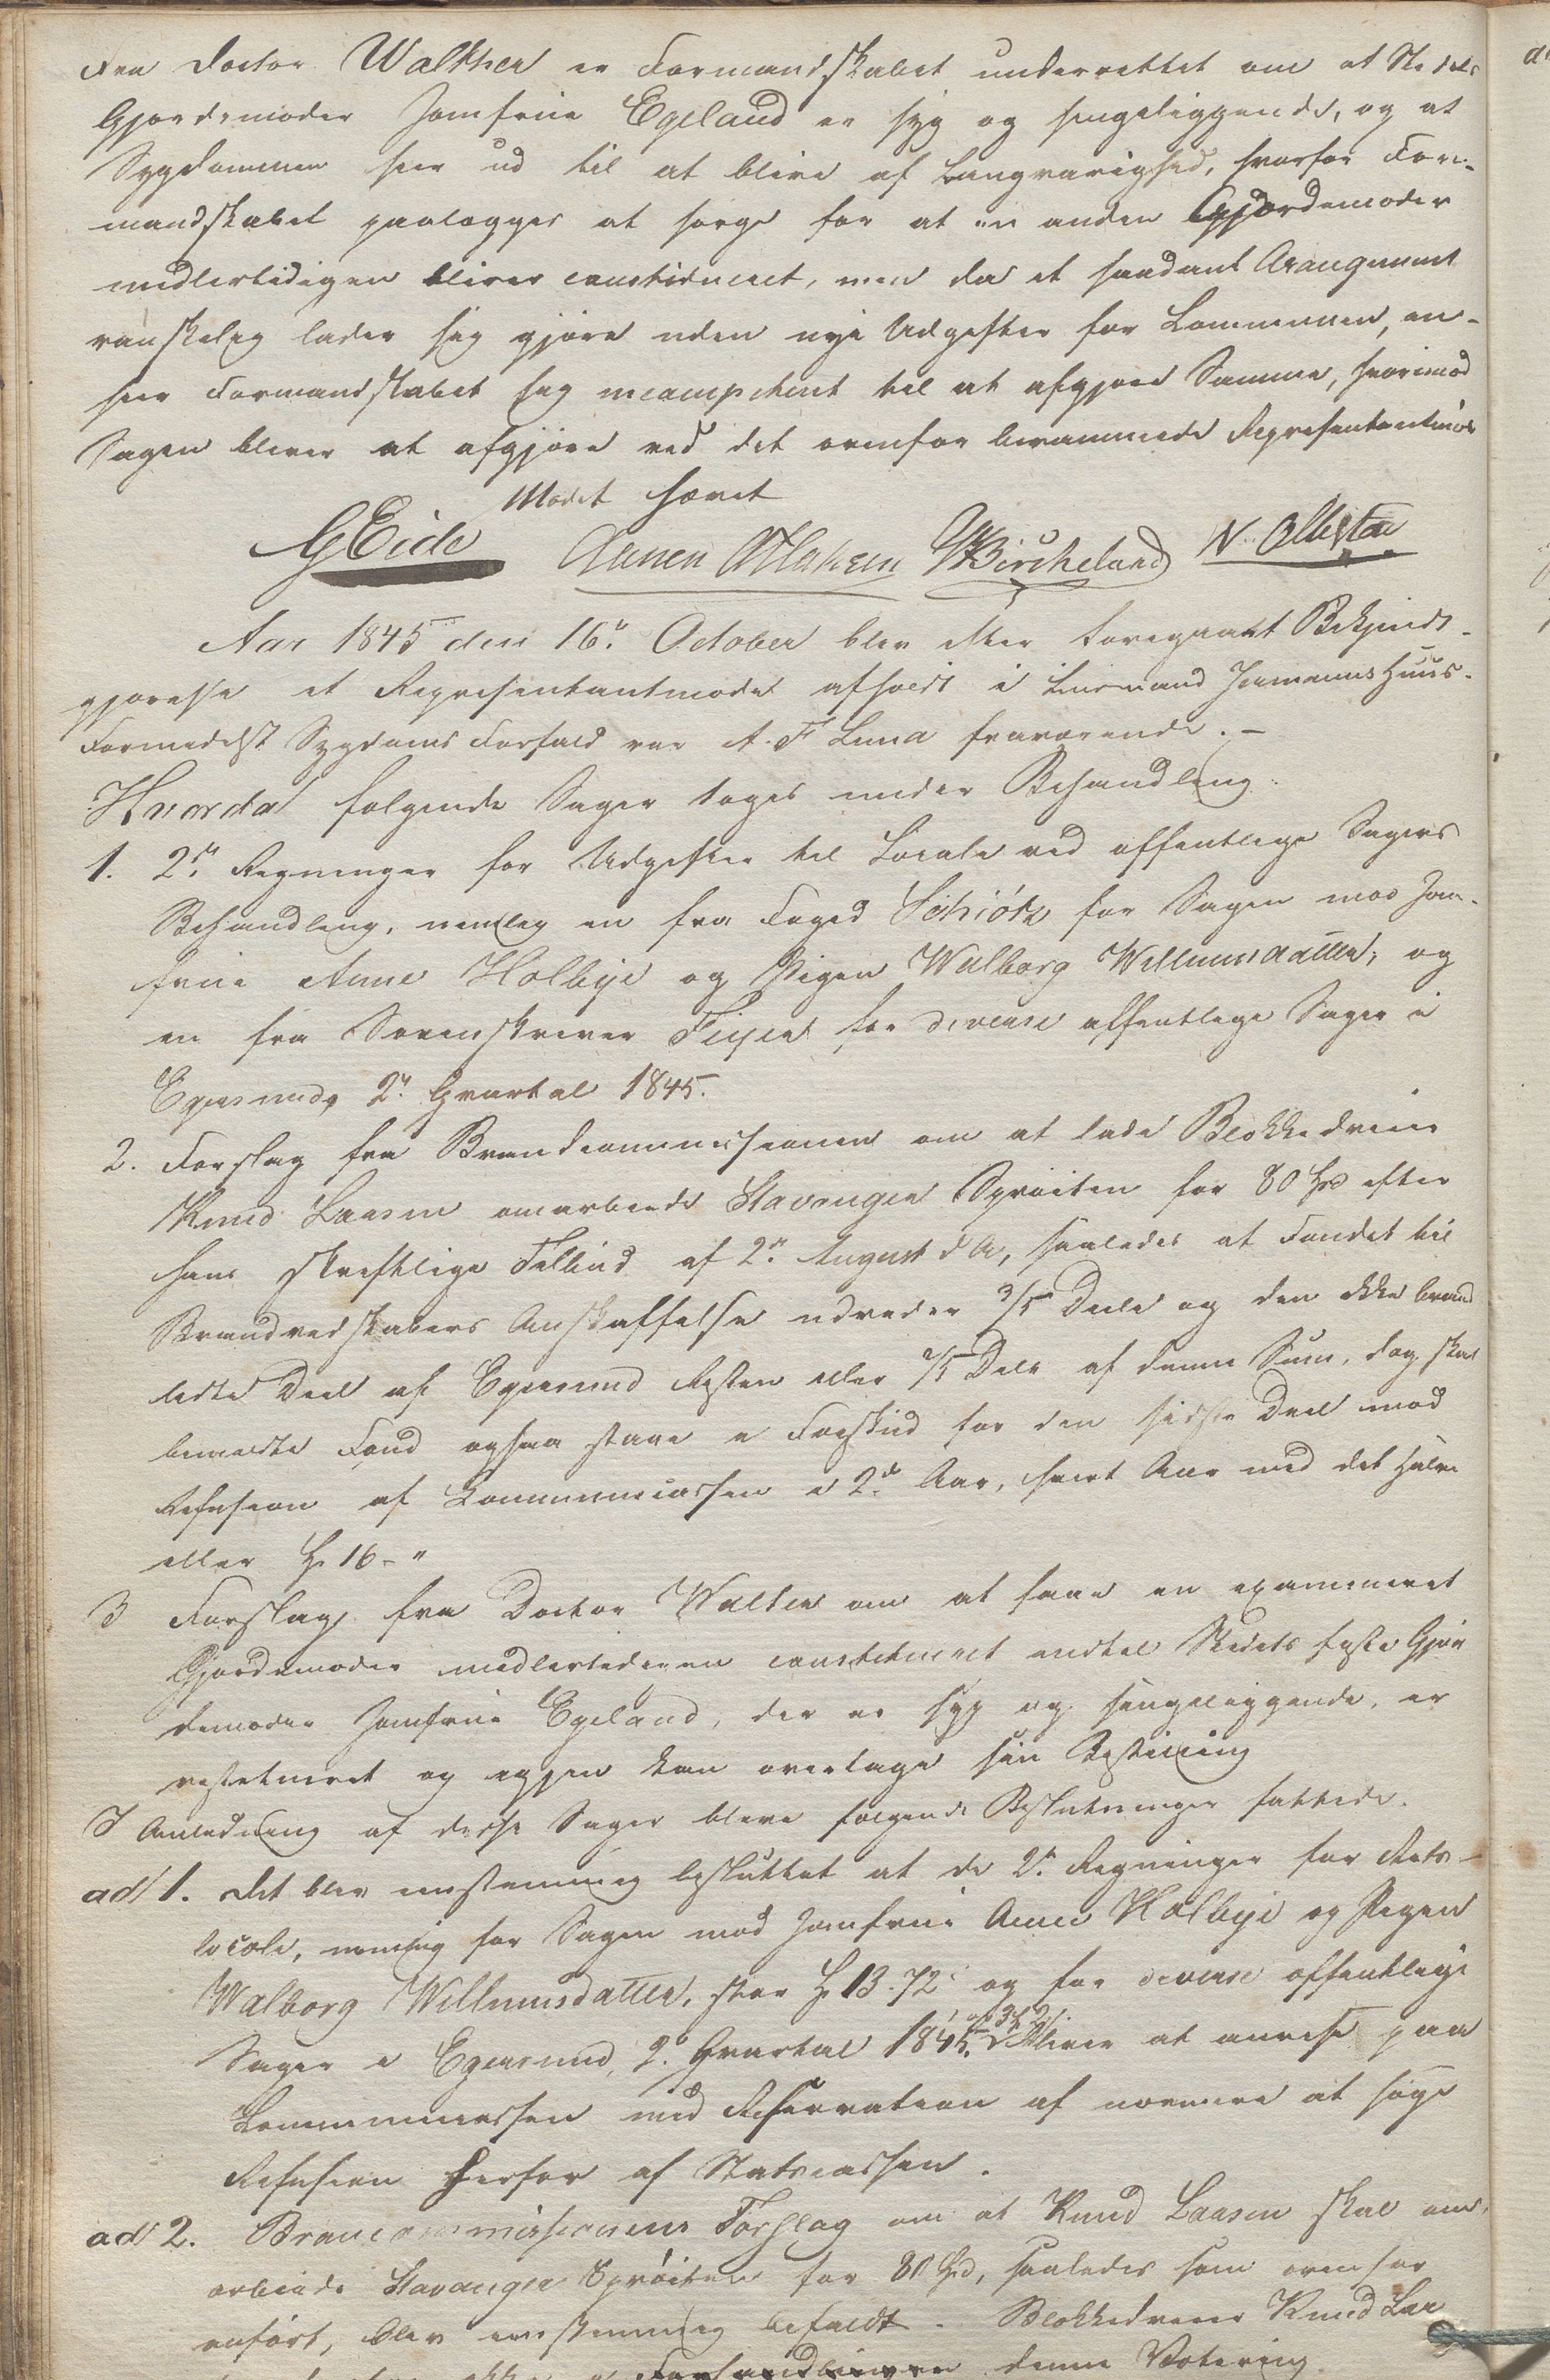 Fra Doctor Walther er Formandskabet underrettet om at Stedets
Gjordemoder Jomfrue Egeland er syg og sengeliggende, og at
Sygdommen seer ud til at blive af Langvarighed, hvorfor For-
mandskabet paalægges at sørge for at en anden Gjordemoder
midlertidigen bliver constitueret, men da et saadant Arangement
vanskelig lader sig gjøre uden nye Udgifter for Communen, an-
seer Formandskabet sig incompetent til at afgjøre Samme, hvorimod
Sagen bliver at afgjøre ved det ovenfor berammede Repræsentantmøde
Mødet hævet
G Eide Aanen Birkeland N.
Aar 1845 den 16de October blev efter foregaaet Bekjendt-
gjørelse et Repræsentantmøde afholdt i Lensmand Huus.
Formedelst Sygdoms Forfald var A. F Luna fraværende. –
Hvorda følgende Sager toges under Behandling
1. 2de Regninger for Udgifter til Locale ved offentlige Sagers
Behandling, nemlig en fra Foged Schiötz for Sagen mod Jom-
frue Anne Holbye og Pigen Walborg Willumsdatter, og
en fra Sorenskriver Feyer for diverse offentlige Sager i
Egersund, 2det Qvartal 1845.
2. Forslag fra Brandcommissionen om at lade Blokkedreier
Knud Laasen omarbeide Stavanger Sprøiten for 80 Spd efter
hans skriftlige Tilbud af 2den August d A, saaledes at Fondet til
Brandredskabers Anskaffelse udreder 3/5 Dele og den ikke brand
Deel af Egersund Resten eller 2/5 Dele af denne Sum, dog skal
bemeldte Fond ogsaa staae i Forskud for den sidste Deel mod
Refusion af Communecassen i 2de Aar, hvert Aar med det Halve
eller Spd 16 – "
3 Forslag fra Doctor Walther om at faae en examineret
Gjordemoder midlertidigen constitueret indtil Stedets faste Gjor
demoder Jomfrue Egeland, der er syg og sengeliggende, er
restitueret og igjen kan overtage sin Bestilling
I Anledning af disse Sager bleve følgende Beslutninger fattede.
ad 1. Det blev eenstemmig besluttet at de 2de Regninger for Rets-
locale, nemlig for Sagen mod Jomfrue Anne Holbye og Pigen
Walborg Willumsdatter, stor Spd 13.72 og for diverse offentlige
Sager i Egersund, 2det Qvartal 1845, bliver at anvise paa
Communecassen med Reservation af nærmere at søge
Refusion herfor af Statscassen.
ad 2. Brandcommissionens Forslag om at Knud Laasen skal om-
arbeide Stavanger Sprøiten for 80 Spd, saaledes som ovenfor
anført, blev eenstemmig bifaldt. Blokkedreier Knud Laa
denne Votering